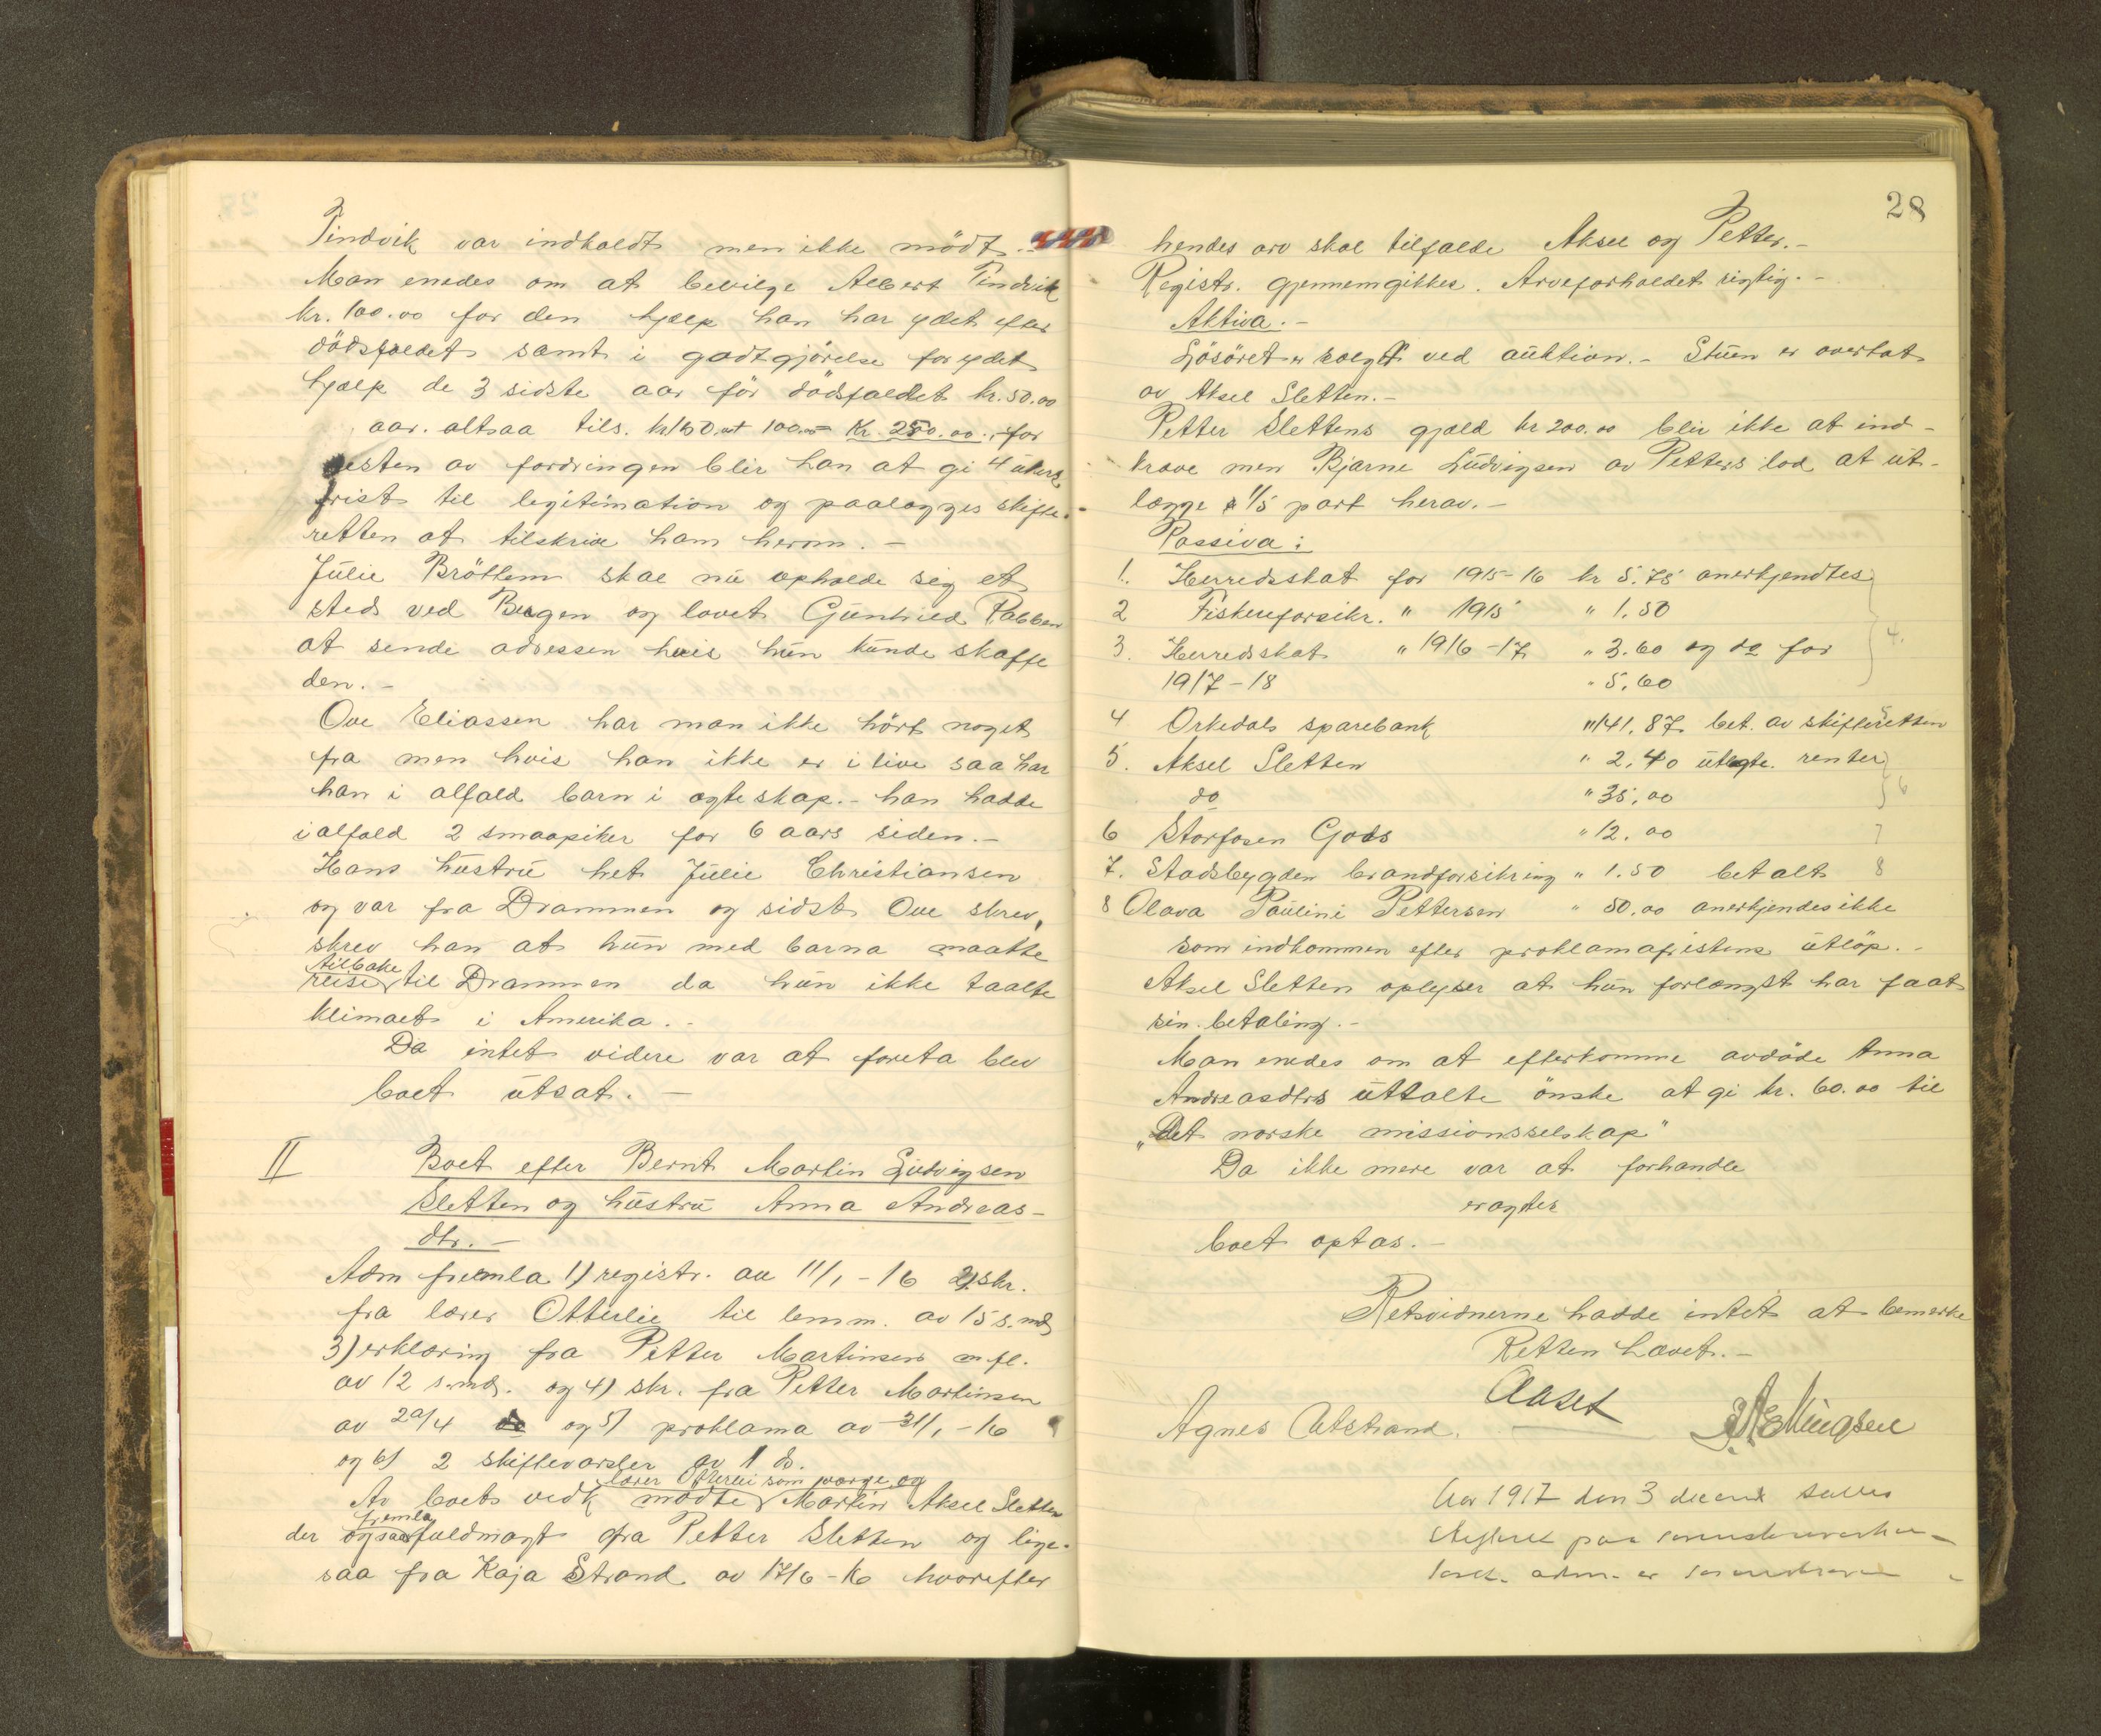 Tindvik var indkaldt men ikke mödt.
Man enedes om at bevilge Albert Tindvik
kr. 100.00 for den hjælp han har ydet efter
dödsfaldet samt i godtgjörelse for ydet
hjælp de 3 sidste aar för dödsfaldet kr. 50.00
aar. altsaa tils. kr 150 + 100.00 = Kr. 250.00. for
resten av fordringen blir han at gi 4 ukers
frist til legitimation og paalægges skifte-
retten at tilskrive ham herom. -
Julie Bröttem skal nu opholde sig et
sted ved Bergen og lovet Gunhild Rabben
at sende adressen hvis hun kunde skaffe
den. -
Ove Eliassen har man ikke hört noget
fra men hvis han ikke er i live saa har
han i alfald barn i ægteskap. - han hadde
ialfald 2 smaapiker for 6 aars siden. -
Hans hustru het Julie Christiansen
og var fra Drammen og sidst Ove skrev,
skrev han at hun med barna maatte
reise tilbake til Drammen da hun ikke taalte
klimaet i Amerika. -
Da intet videre var at foreta blev
boet utsat. -
II Boet efter Bernt Martin Ludvigsen
Sletten og hustru Anna Andreas-
dtr. -
Adm fremla 1) registr. av 11/1 - 16 2) skr.
fra lærer Otterlei til lensm. av 15 s. md
3) erklæring fra Petter Martinsen m fl.
av 12 s. md. og 4) skr. fra Petter Martinsen
av 20/4 do og 5) proklama av 31/1 - 16
og 6) 2 skiftevarsler av 1 ds.
Av boets vedk mödte lærer Otterlei som værge og Martin Aksel Sletten
der ogsaa fremla fuldmagt fra Petter Sletten og lige-
saa fra Kaja Strand av 17/6 - 16 hvorefter
28
hendes arv skal tilfalde Aksel og Petter. -
Registr. gjennemgikkes. Arveforholdet rigtig. -
Aktiva. -
Lösöret er solgt ved auktion. - Stuen er overtat
av Aksel Sletten. -
Petter Slettens gjæld kr 200.00 blir ikke at ind-
kræve men Bjarne Ludvigsen av Petters lod at ut-
lægge 1/5 part herav. -
Passiva:
1. Herredsskat for 1915-16 kr 5.75 anerkjendtes
2 Fiskeriforsikr. " 1915 " 1.50
3. Herredsskat " 1916 -17 " 3.60 og do for 4.
1917 - 18 " 5.60
4 Orkedals sparebank " 141.87 bet. av skifteretten 5
5. Aksel Sletten " 2.40 utlagte renter
do " 35.00 6
6 Storfosen Gods " 12.00 7
7. Stadsbygden brandforsikring " 1.50 betalt 8
8 Olava Paulini Pettersen " 50.00 anerkjendes ikke
som indkommen efter proklamafristens utlöp. -
Aksel Sletten oplyser at hun forlængst har faat
sin betaling. -
Man enedes om at efterkomme avdöde Anna
Andreasdtrs uttalte önske at gi kr. 60.00 til
"Det norske missionsselskap"
Da ikke mere var at forhandle
eragtes
boet optas. -
Retsvidnerne hadde intet at bemerke
Retten hævet. -
Aaset
Agnes Utstrand. Ellingsen
Aar 1917 den 3 decemb sattes
skifteret paa sorenskriverkon-
toret. adm. er sorenskriveren